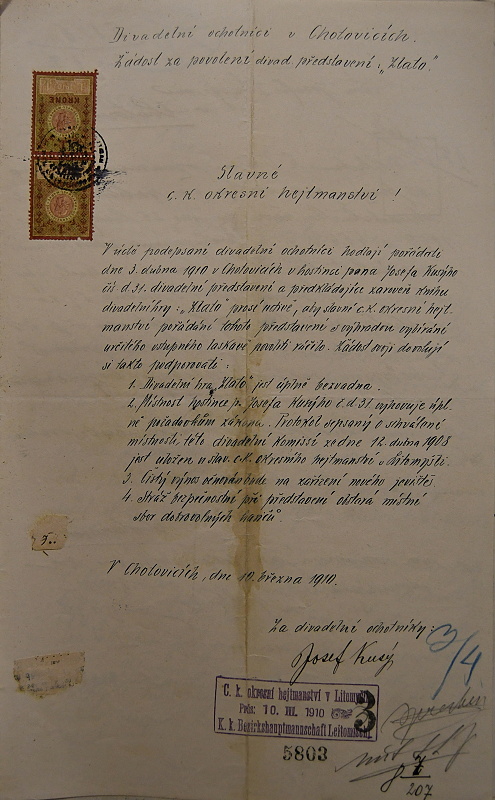 Divadelní ochotníci v Cholovicích.
Žádost za povolení divad. představení: „Zlato."
KRONE
1
Slavné
c. k. okresní hejtmanství!
V úctě podepsaní divadelní ochotníci hodlají pořádati
dne 3. dubna 1910 v Cholovicích v hostinci pana Josefa Kusého
čís. d. 31. divadelní představení a předkládajíce zároveň knihu
divadelní hry: „Zlato" prosí uctivě, aby slavné c. k. okresní hejt-
manství pořádání tohoto představení s výhradou vybírání
určitého vstupného laskavě povoliti ráčilo. Žádost svoji dovolují
si takto podporovati:
1. Divadelní hra „Zlato" jest úplně bezvadna.
2. Místnost hostince p. Josefa Kusého č. d. 31 vyhovuje úpl-
ně požadavkům zákona. Protokol sepsaný o schválení
místnosti, této divadelní komissí ze dne 12. dubna 1908
jest uložen u slav. c. k. okresního hejtmanství v Litomyšli.
3. Čistý výnos věnován bude na zařízení nového jeviště.
4. Stráž bezpečnostní při představení obstará místní
sbor dobrovolných hasičů.
V Cholovicích, dne 10. března 1910.
Za divadelní ochotníky:
Josef Kusý
3/4
C. k. okresní hejtmanství v Litomyšli
Præs: 10. III. 1910
3
K. k. Bezirkshauptmannschaft Leitomischl
5803
207